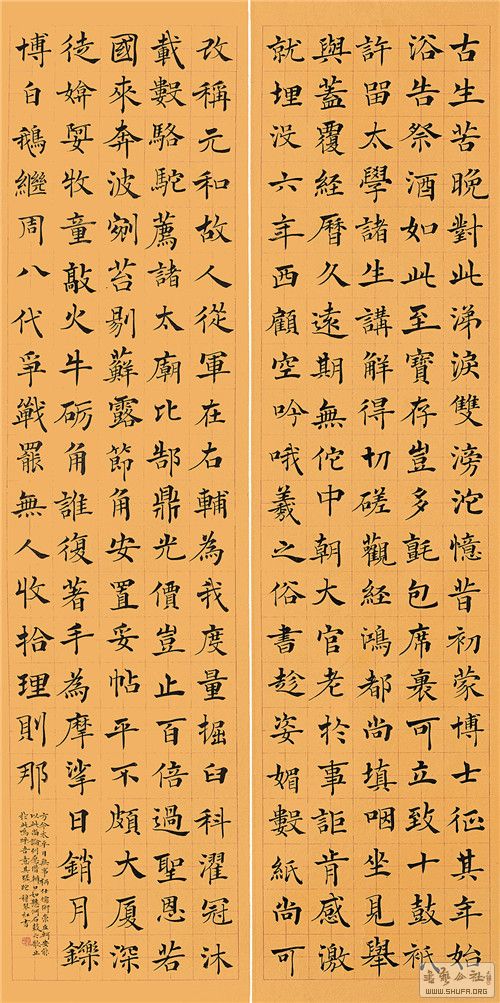 古生苦晚對此涕淚雙滂沱憶昔初蒙博士征其年始
改稱元和故人從軍在右輔為我度量掘臼科濯冠沐
浴告祭酒如此至寶存豈多氈包席裹可立致十鼓衹
載數駱駝薦諸太廟比郜鼎光價豈止百倍過聖恩若
許留太學諸生講解得切磋觀經鴻都尚填咽坐見舉
國來奔波剜苔剔蘚露節角安置妥帖平不頗大廈深
與蓋覆經曆久遠期無佗中朝大官老於事詎肯感激
徒媕娿牧童敲火牛砺角誰復著手為摩挲日銷月鑠
就埋没六年西顧空吟哦羲之俗書趁姿媚數紙尚可
博白鵝繼周八代爭戰罷無人收拾理則那
方今太平日無事柄任儒術崇丘軻安能
以此尚論列願借辯口如懸河石鼓之歌止
於此嗚呼吾意其蹉跎 書
WWW.SHUFA.ORG